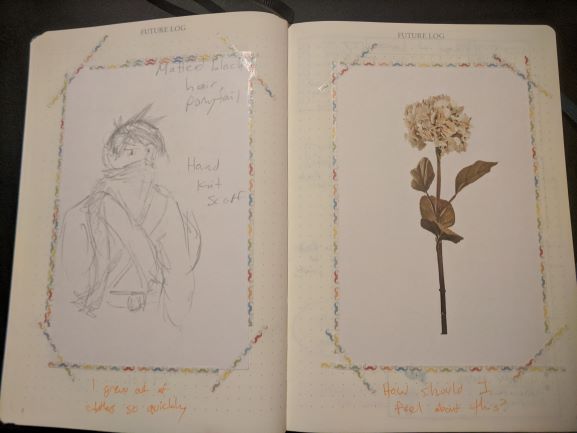 FUTURE LOG
Matted black
hair,
ponytail
Hand
knit
scarf
I grew out of
clothes so quickly
FUTURE LOG
How should I
feel about this?